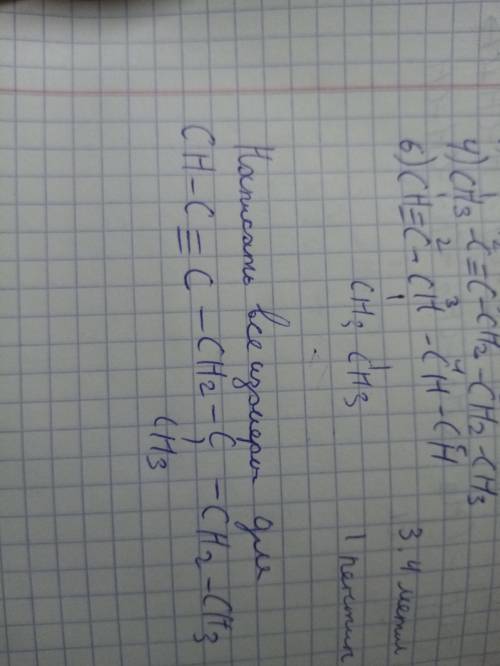 4) CH3 - C ≡ C - CH2 - CH2 - CH3
1 2
6) CH ≡ C - CH - CH - CH
1 2 3 4 5
CH3 CH3
3.4 метил
1 пентин
Написать все изомеры для
CH - C ≡ C - CH2 - C - CH2 - CH3
CH3